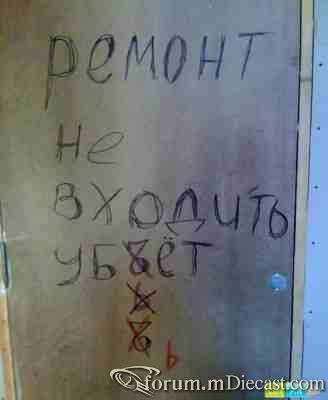 ремонт
не
входить
убъёт
ь
forum.mDiecast.com